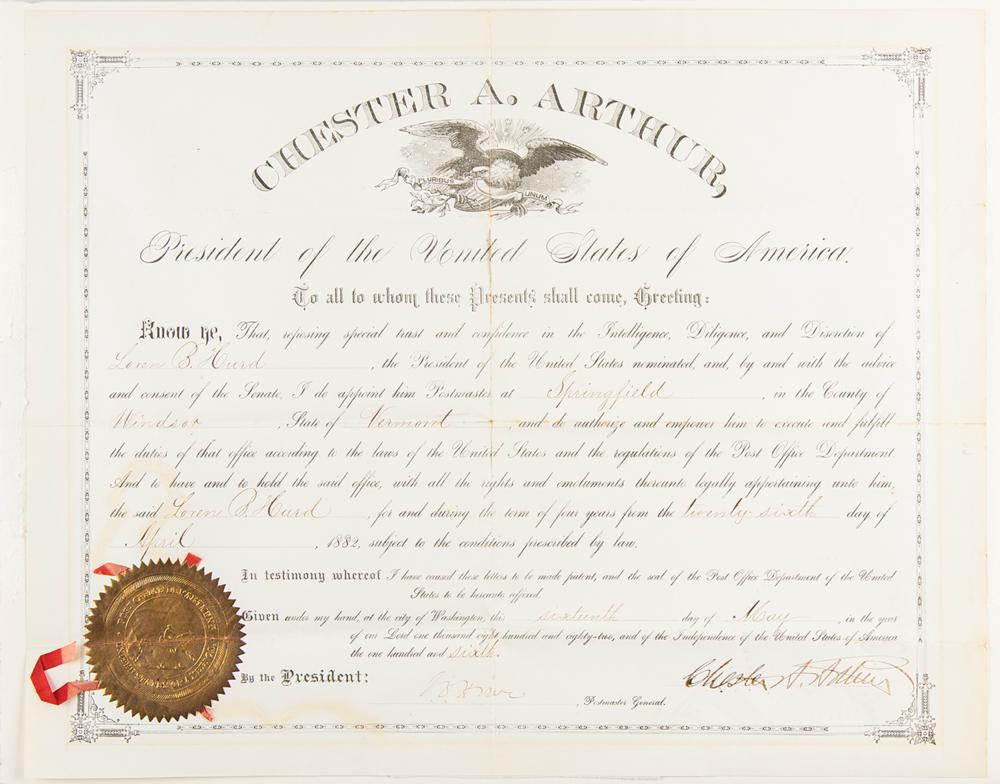 CHESTER A. ARTHUR,
PLURIBUS UNUM
President of the United States of America.
To all to whom these Presents shall come, Greeting:
Know ye, That, reposing special trust and confidence in the Intelligence, Diligence, and Discretion of
Loren B. Hurd, the President of the United States nominated, and, by and with the advice
and consent of the Senate, I do appoint him Postmaster at Springfield, in the County of
Windsor, State of Vermont and do authorize and empower him to execute and fulfill
the duties of that office according to the laws of the United States and the regulations of the Post Office Department.
And to have and to hold the said office, with all the rights and emoluments thereunto legally appertaining unto him,
the said Loren B. Hurd, for and during the term of four years from the twenty sixth day of
April, 1882, subject to the conditions prescribed by law.
In testimony whereof I have caused these letters to be made patent, and the seal of the Post Office Department of the United
States to be hereunto affixed.
Given under my hand, at the city of Washington, this sixteenth day of May, in the year
of our Lord one thousand eight hundred and eighty-two, and of the Independence of the United States of America
the one hundred and sixth.
By the President:
Chester A. Arthur
Postmaster General.